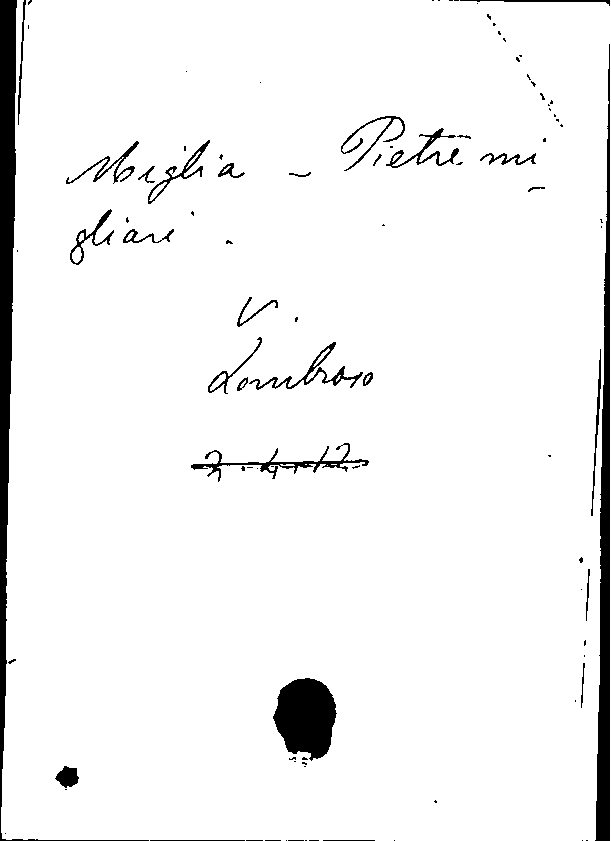 Miglia - Pietre mi-
gliari.
V.
Lombroso